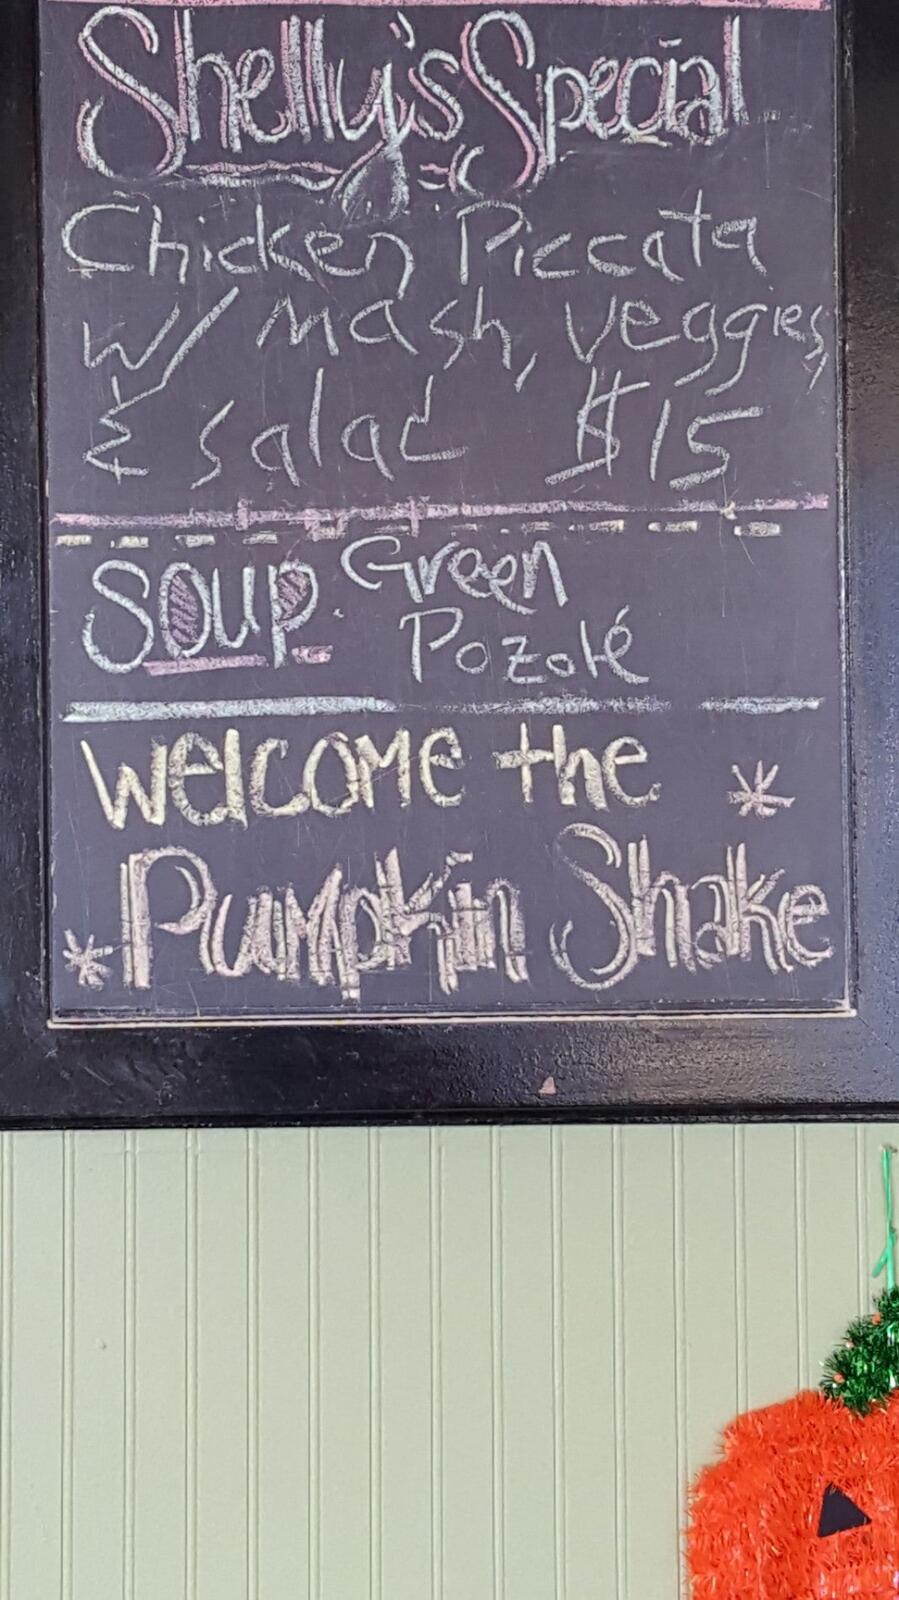 Shelly's Special
Chicken Piccata
w/ mash, veggies,
& salad $15
Soup. Green
Pozolé
Welcome the
*
* Pumpkin Shake